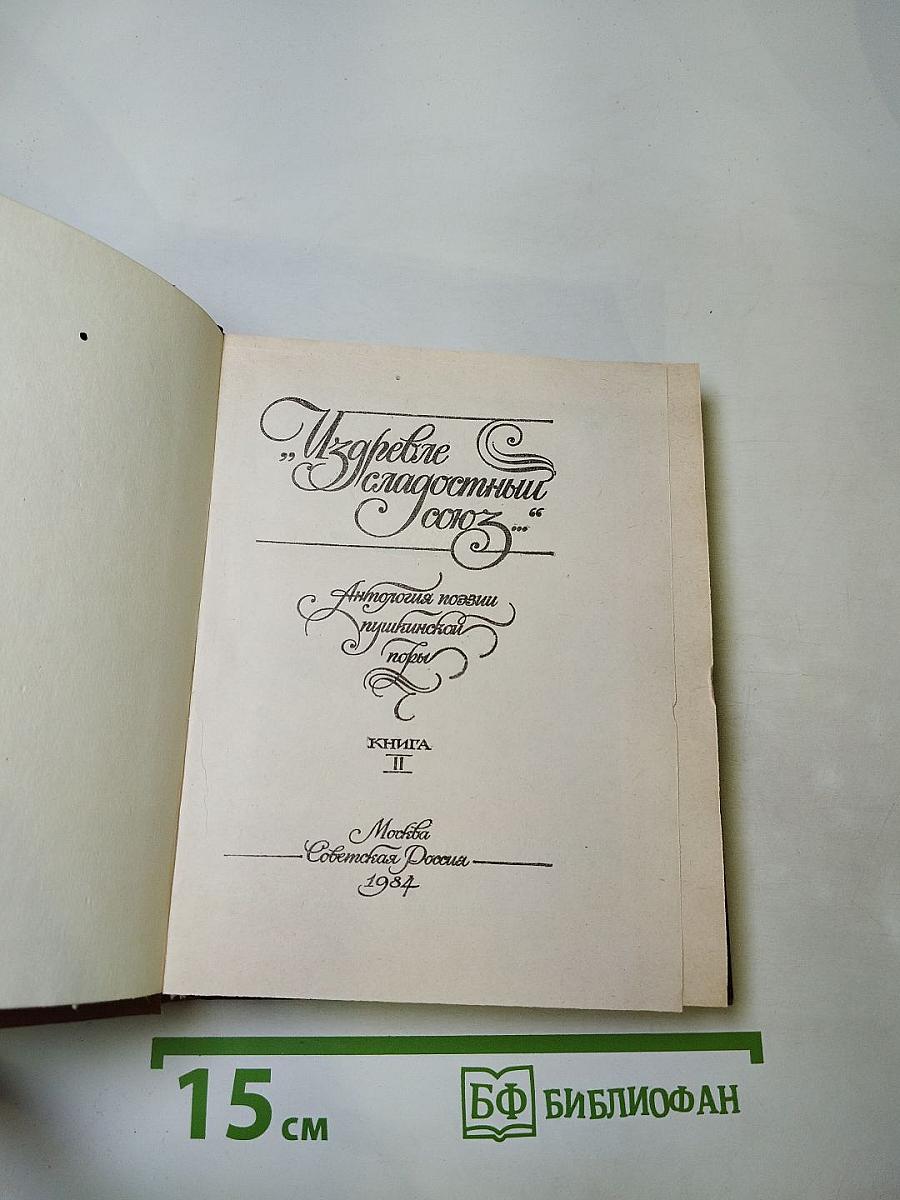 „Издревле
сладостный
союз...“
Антология поэзии
пушкинской
поры
КНИГА
II
Москва
Советская Россия
1984
15 см
БФ БИБЛИОФАН